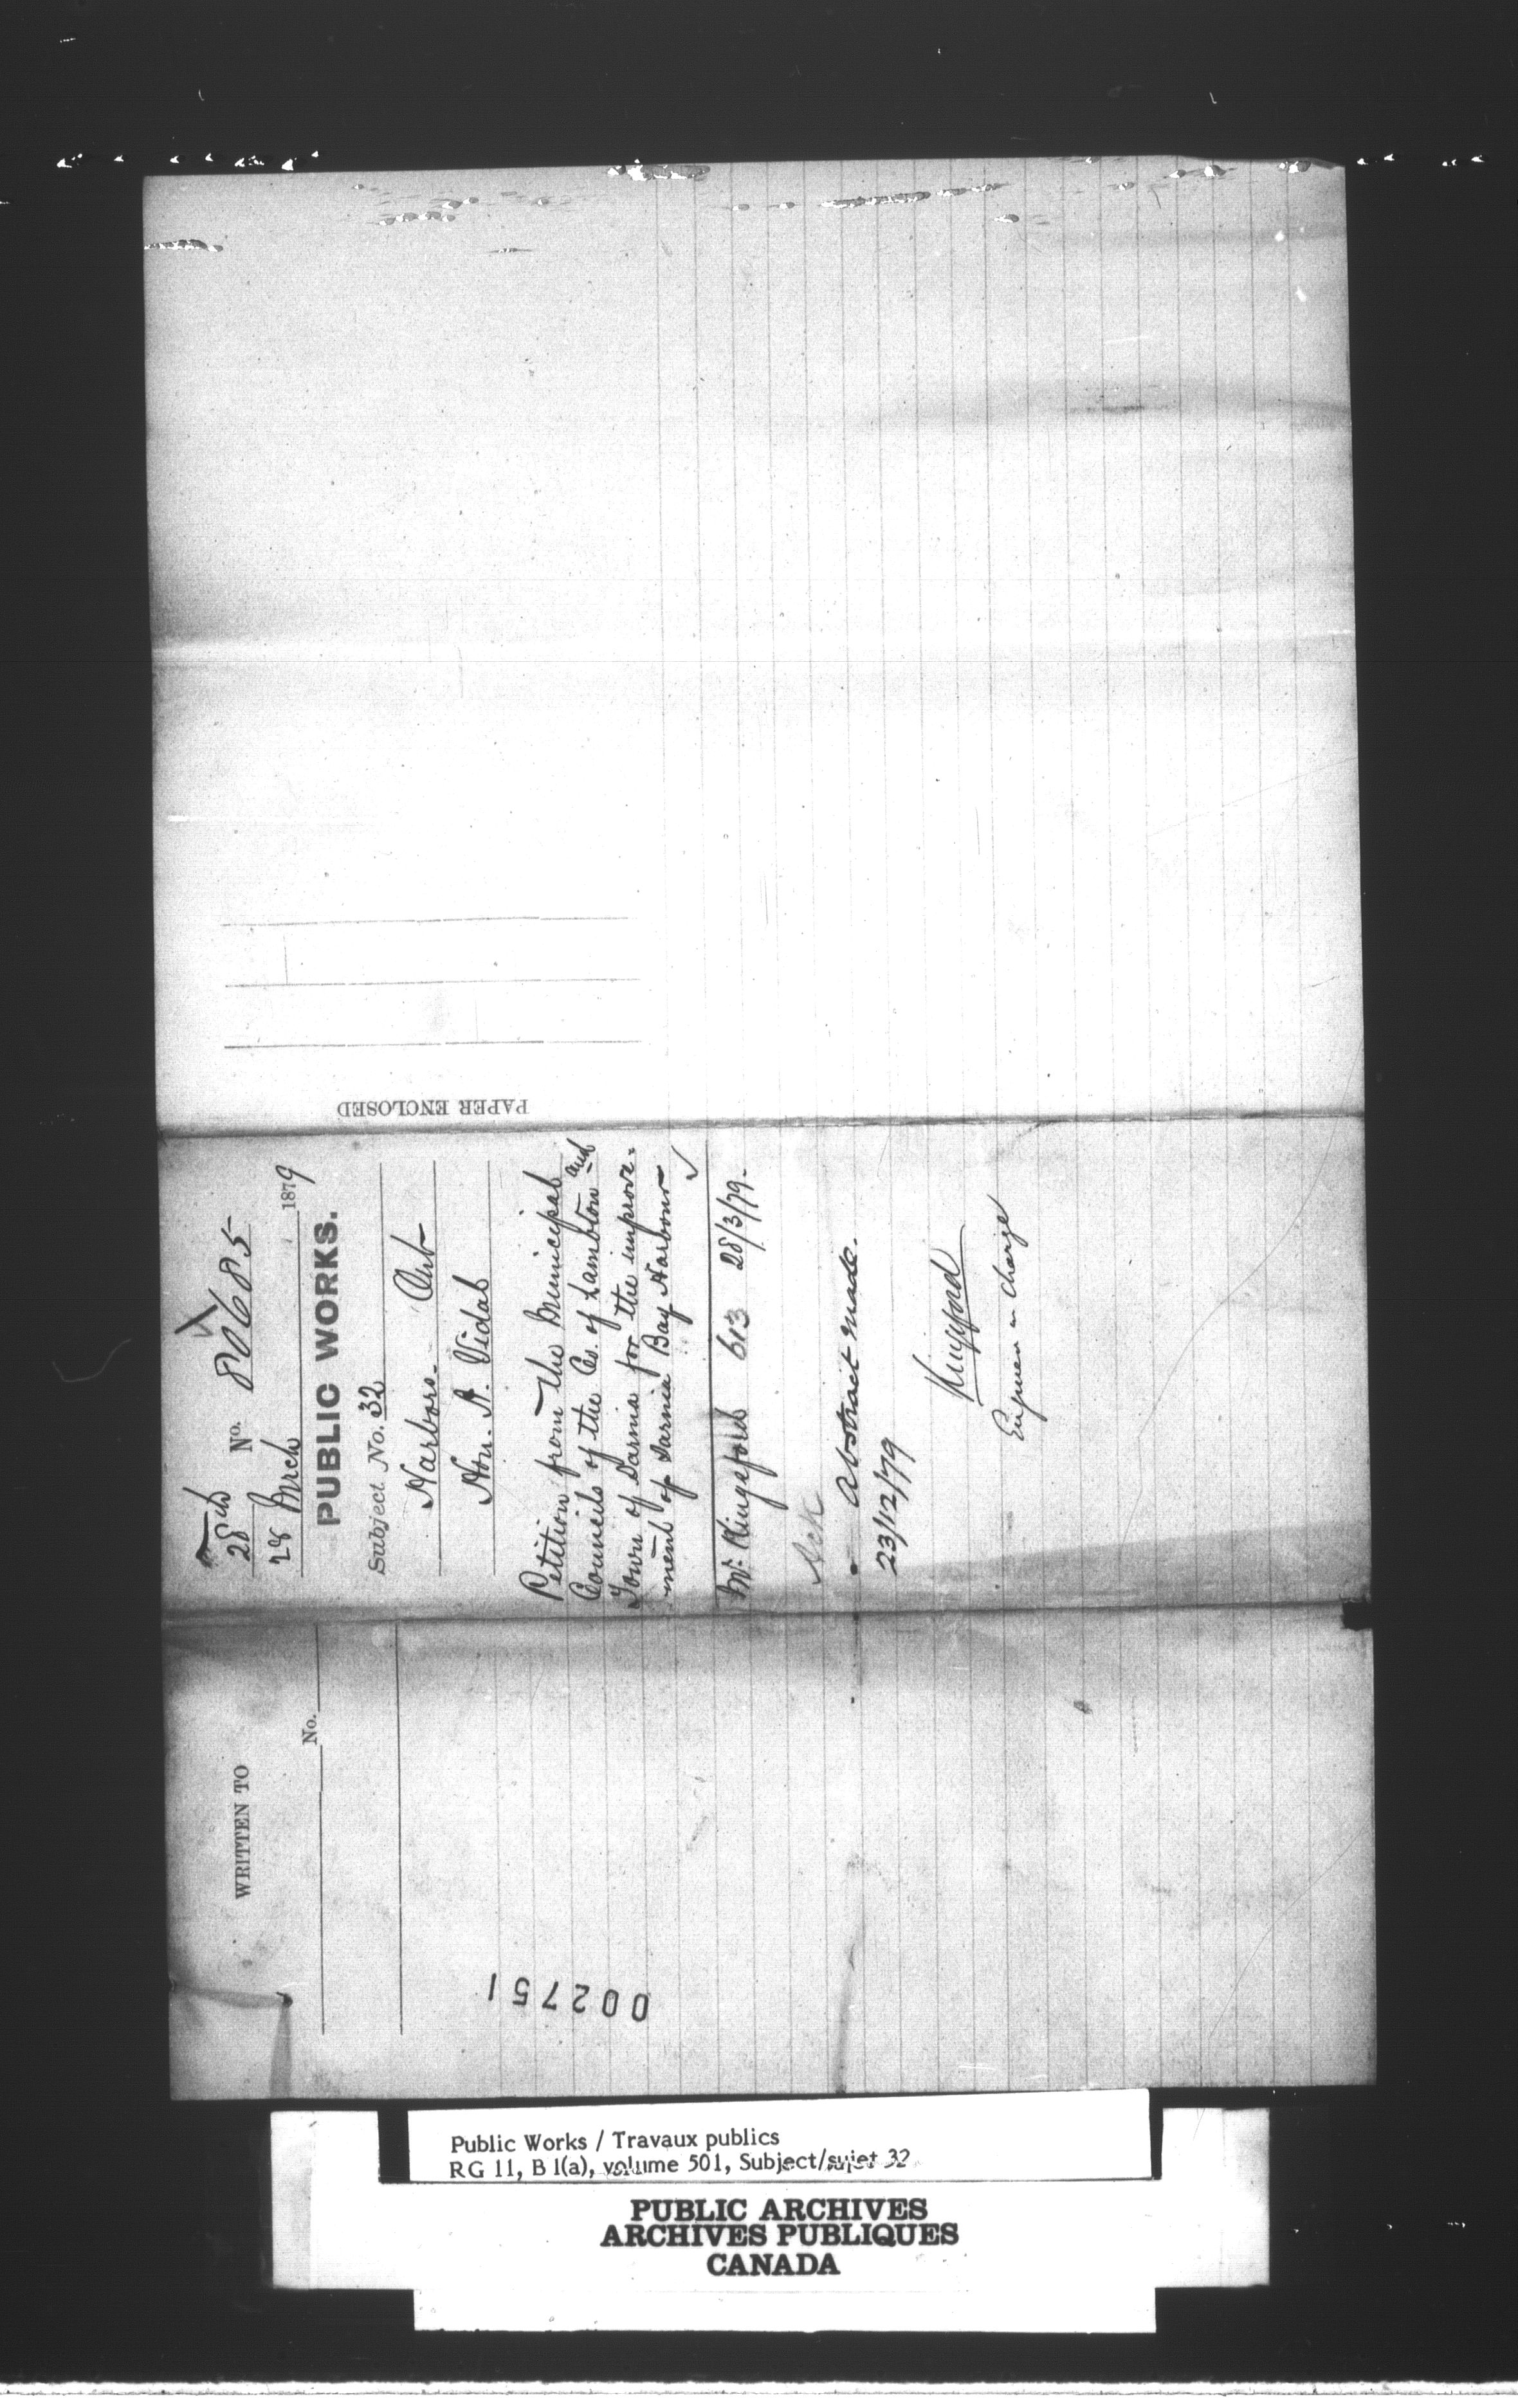 28th No. 80685
28 March 1879
PUBLIC WORKS.
Subject No. 32
Harbors. Ont
Hon. A. Vidal
Petition from the Municipal
Councils of the Co. of Lambton and
Town of Sarnia for the improve-
ment of Sarnia Bay Harbour
Mr. Kingsford 613 28/3/79.
Ack
Abstract made.
23/12/79
Kingsford
Engineer in charge
PAPER ENCLOSED
WRITTEN TO
No.
002751
Public Works / Travaux publics
RG 11, B 1(a), volume 501, Subject/sujet 32
PUBLIC ARCHIVES
ARCHIVES PUBLIQUES
CANADA